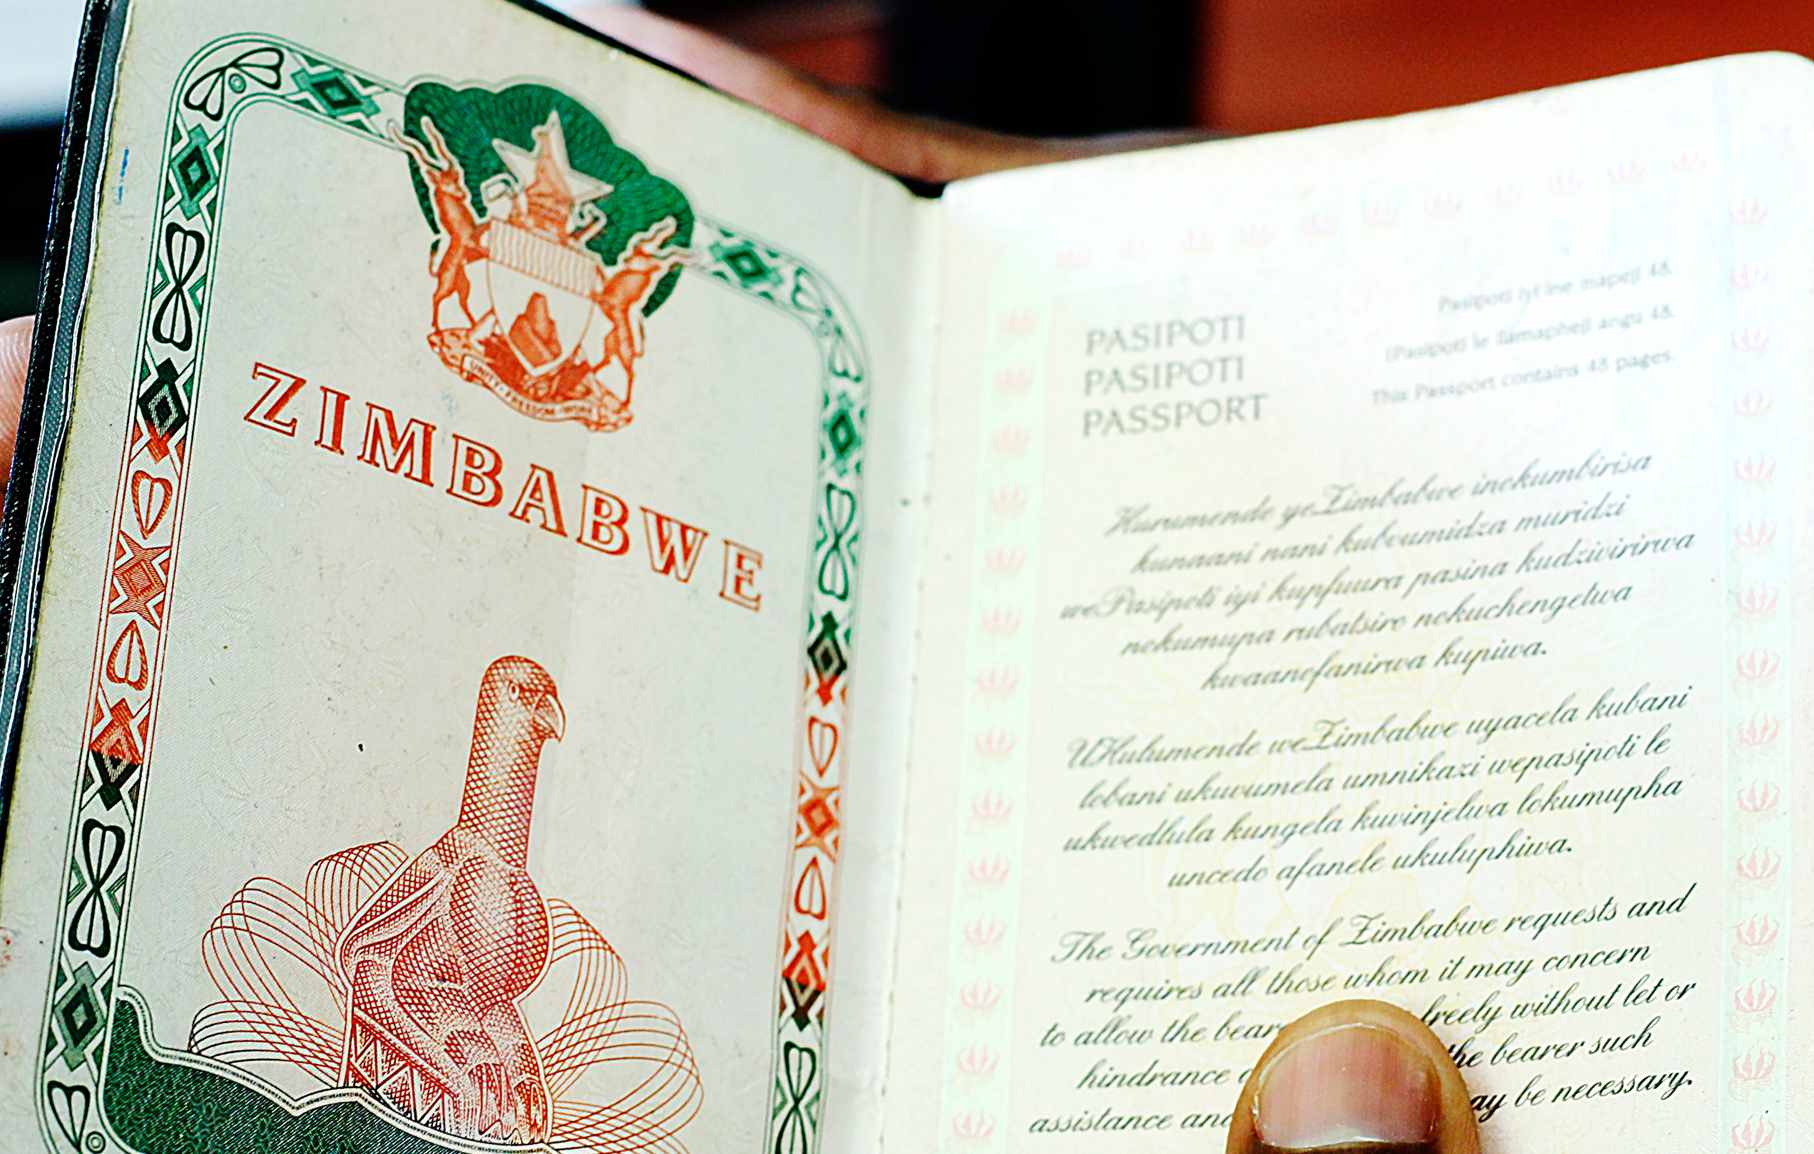 UNITY FREEDOM WORK
ZIMBABWE
PASIPOTI
PASIPOTI
PASSPORT
Pasipoti iyi ine mapeji 48.
IPasipoti le ilamapheji angu 48.
This Passport contains 48 pages.
Hurumende yeZimbabwe inokumbirisa
kunaani nani kubvumidza muridzi
wePasipoti iyi kupfuura pasina kudzivirirwa
nokumupa rubatsiro nokuchengetwa
kwaanofanirwa kupiwa.
UHulumende weZimbabwe uyacela kubani
lobani ukuvumela umnikazi wepasipoti le
ukwedlula kungela kuvinjelwa lokumupha
uncedo afanele ukuluphiwa.
The Government of Zimbabwe requests and
requires all those whom it may concern
to allow the bear freely without let or
hindrance the bearer such
assistance and may be necessary.